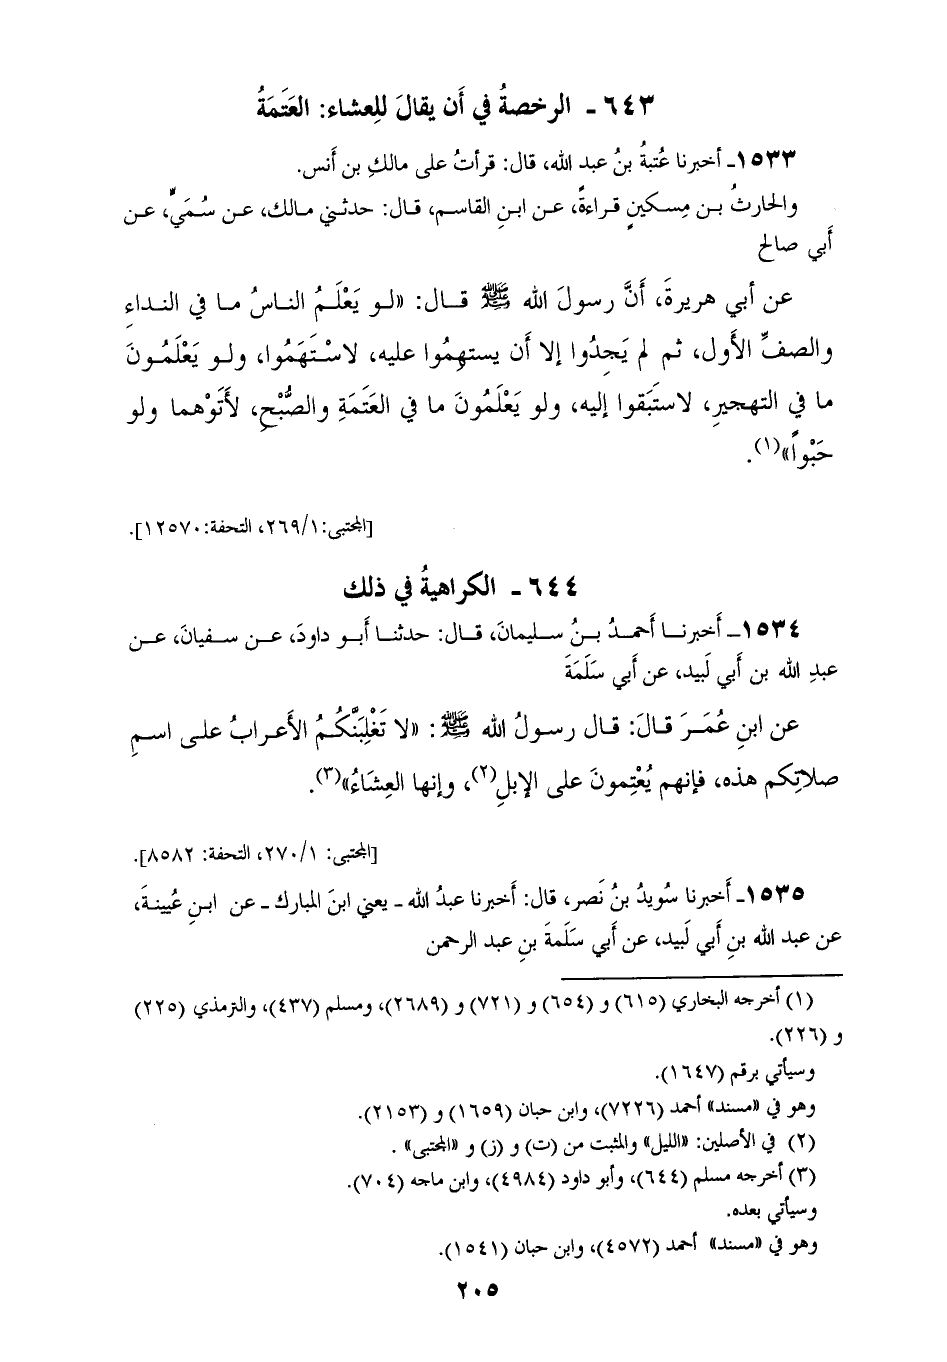 ٦٤٣ ـ الرخصةُ في أَن يقالَ لِلعشاء: العَتَمَةُ
١٥٣٣ـ أخبرنا عُتبةُ بنُ عبد الله، قال: قرأتُ على مالكِ بن أَنس.
والحارثُ بن مِسكينٍ قراءةً، عن ابنِ القاسم، قال: حدثني مالك، عن سُمَيٍّ، عن
أَبي صالح
عن أَبي هريرةَ، أَنَّ رسولَ الله ﷺ قال: «لو يَعْلَمُ الناسُ ما في النداءِ
والصفِّ الأَول، ثم لم يَجِدُوا إلا أَن يستهِمُوا عليه، لاسْتَهَمُوا، ولو يَعْلَمُونَ
ما في التهجيرِ، لاستَبَقوا إليه، ولو يَعْلَمُونَ ما في العَتَمَةِ والصُّبْحِ، لأَتَوْهما ولو
حَبْواً»(١).
[المجتبى: ٢٦٩/١، التحفة: ١٢٥٧٠].
٦٤٤ ـ الكراهيةُ في ذلك
١٥٣٤ـ أَخبرنا أَحمدُ بنُ سليمانَ، قال: حدثنا أَبو داودَ، عن سفيانَ، عن
عبدِ الله بن أَبي لَبيد، عن أَبي سَلَمَةَ
عن ابنِ عُمَرَ قالَ: قال رسولُ الله ﷺ: «لا تَغْلِبَنَّكُمُ الأَعرابُ على اسمِ
صلاتِكم هذه، فإنهم يُعْتِمونَ على الإبلِ(٢)، وإنها العِشَاءُ»(٣).
[المجتبى: ٢٧٠/١، التحفة: ٨٥٨٢].
١٥٣٥ـ أَخبرنا سُويدُ بنُ نَصر، قال: أَخبرنا عبدُ الله ـ يعني ابنَ المبارك ـ عن ابنِ عُيينةَ،
عن عبد الله بنِ أَبي لَبيد، عن أَبي سَلَمةَ بنِ عبد الرحمن
(١) أخرجه البخاري (٦١٥) و (٦٥٤) و (٧٢١) و (٢٦٨٩)، ومسلم (٤٣٧)، والترمذي (٢٢٥)
و (٢٢٦).
وسيأتي برقم (١٦٤٧).
وهو في «مسند» أحمد (٧٢٢٦)، وابن حبان (١٦٥٩) و (٢١٥٣).
(٢) في الأصلين: «الليل» والمثبت من (ت) و (ز) و «المجتبى» .
(٣) أخرجه مسلم (٦٤٤)، وأبو داود (٤٩٨٤)، وابن ماجه (٧٠٤).
وسيأتي بعده.
وهو في «مسند» أحمد (٤٥٧٢)، وابن حبان (١٥٤١).
٢٠٥